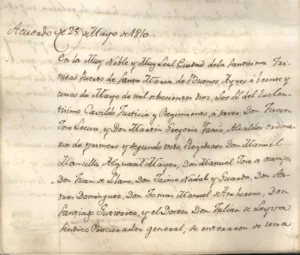 Acuerdo de 25 de Mayo de 1810
En la Muy Noble y Muy Leal Ciudad de la Santisima Tri
nidad Puerto de Santa Maria de Buenos Ayres à veinte y
cinco de Mayo de mil ochocientos diez: Los SS. del Exelen
tisimo Cavildo Justicia y Regimiento, à saver Don Juan
José Lezica, y Don Martin Gregorio Yaniz, Alcaldes ordina
rios de primero y segundo voto, Regidores Don Manuel
Mancilla Alguacil Mayor, Don Manuel José de Ocampo,
Don Juan de Llano, Don Jaime Nadal y Guarda, Don An
dres Dominguez, Don Tomas Manuel de Anchorena, Don
Santiago Gutierrez, y el Doctor Don Julian de Leyva
Sindico Procurador general; se enteraron de una